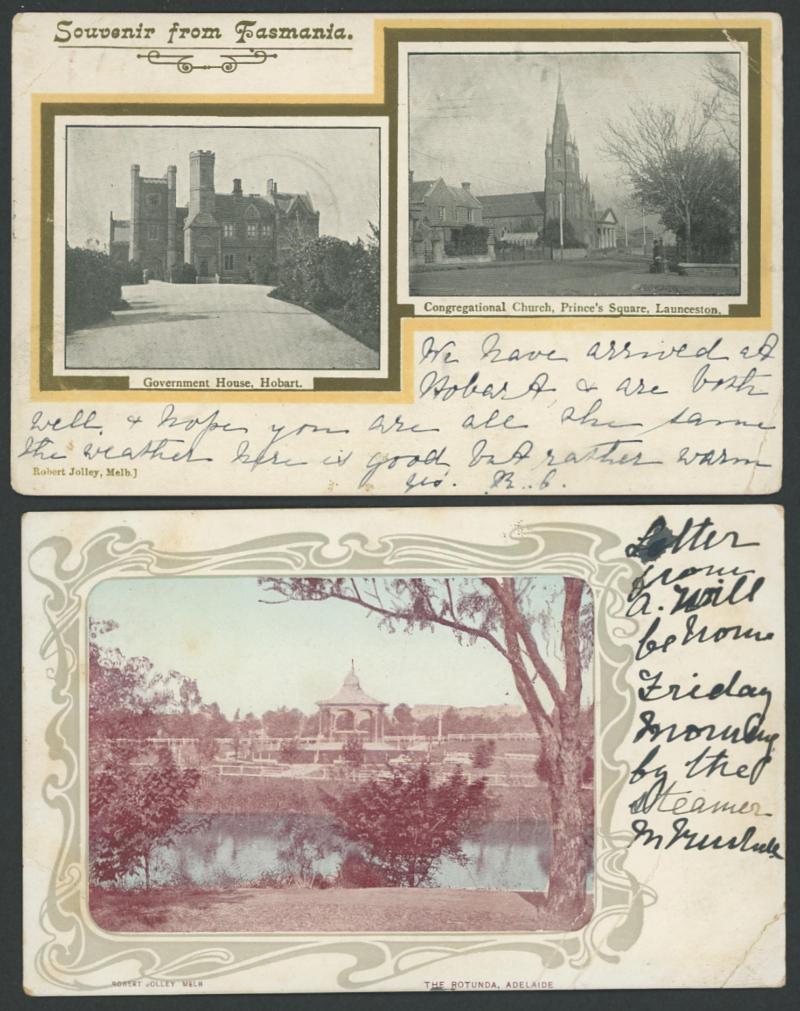 Souvenir from Tasmania.
Congregational Church, Prince's Square, Launceston.
Government House, Hobart.
We have arrived at
Hobart, & are both
well, & hope you are all the same
the weather here is good but rather warm
Robert Jolley, Melb.]
R. C.
Letter
from
a. Will
be home
Friday
Morning
by the
Steamer
ROBERT JOLLEY MELB
THE ROTUNDA, ADELAIDE